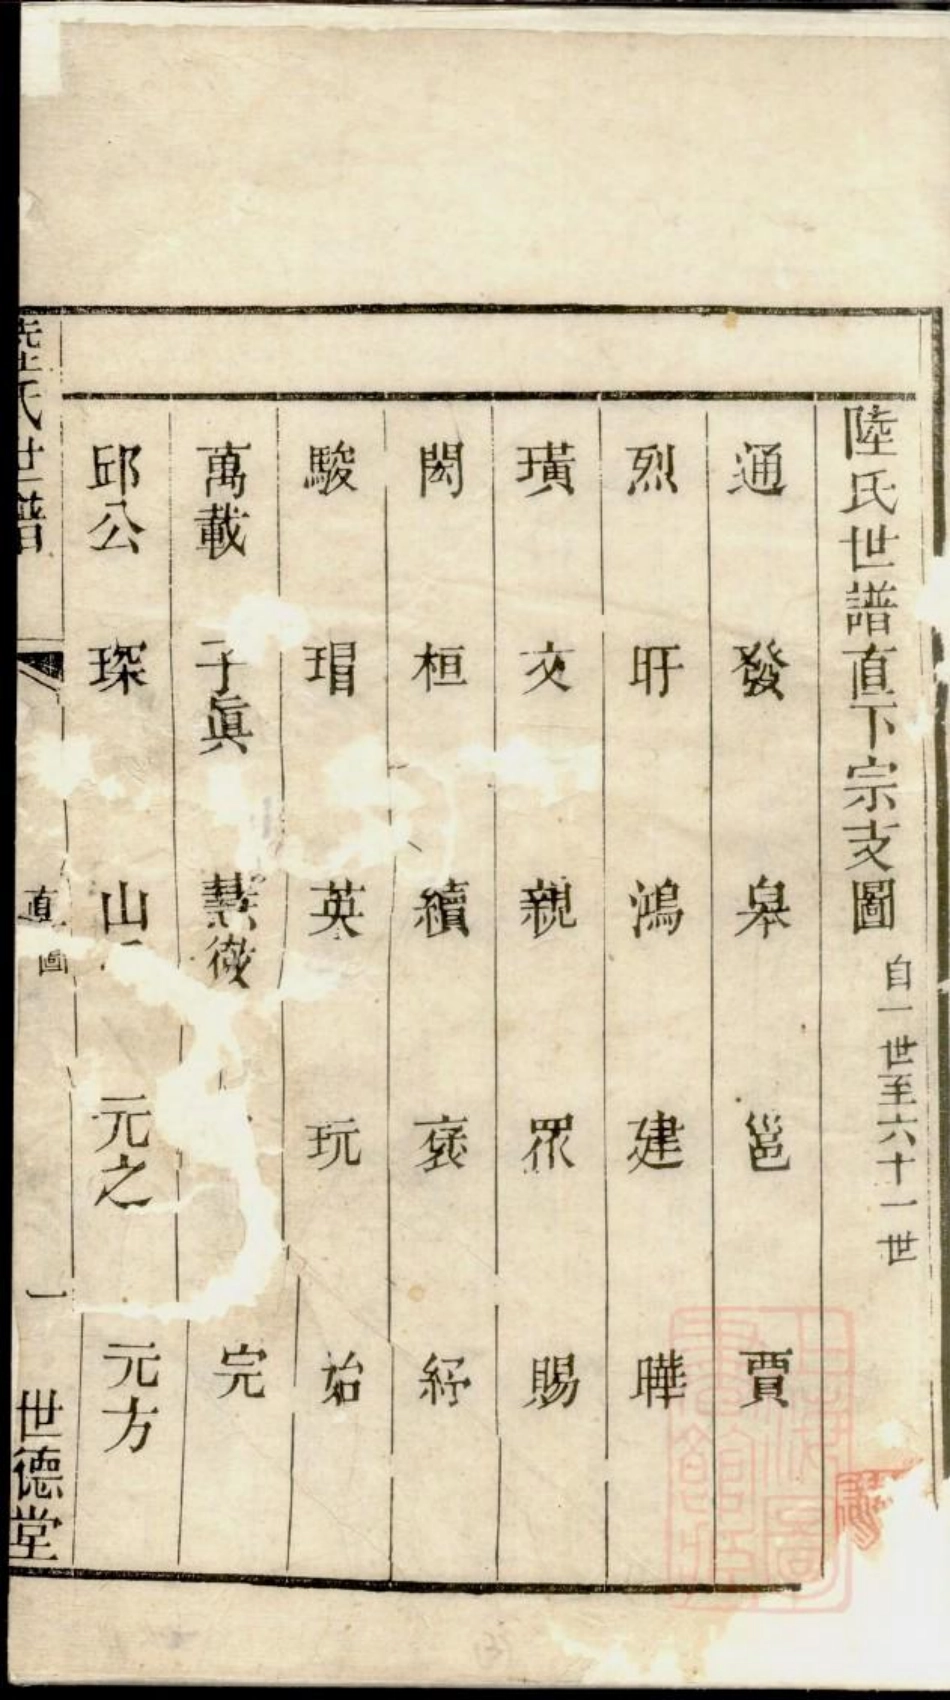 陸氏世譜直下宗支圖 自一世至六十一世
通 發 皋 邕 賈
烈 盱 鴻 建 曄
璜 交 親 眾 賜
閎 桓 續 褒 紓
駿 瑁 英 玩 始
萬載 子真 慧徹 完
邱公 琛 山 元之 元方
陸氏世譜 直圖 一 世德堂